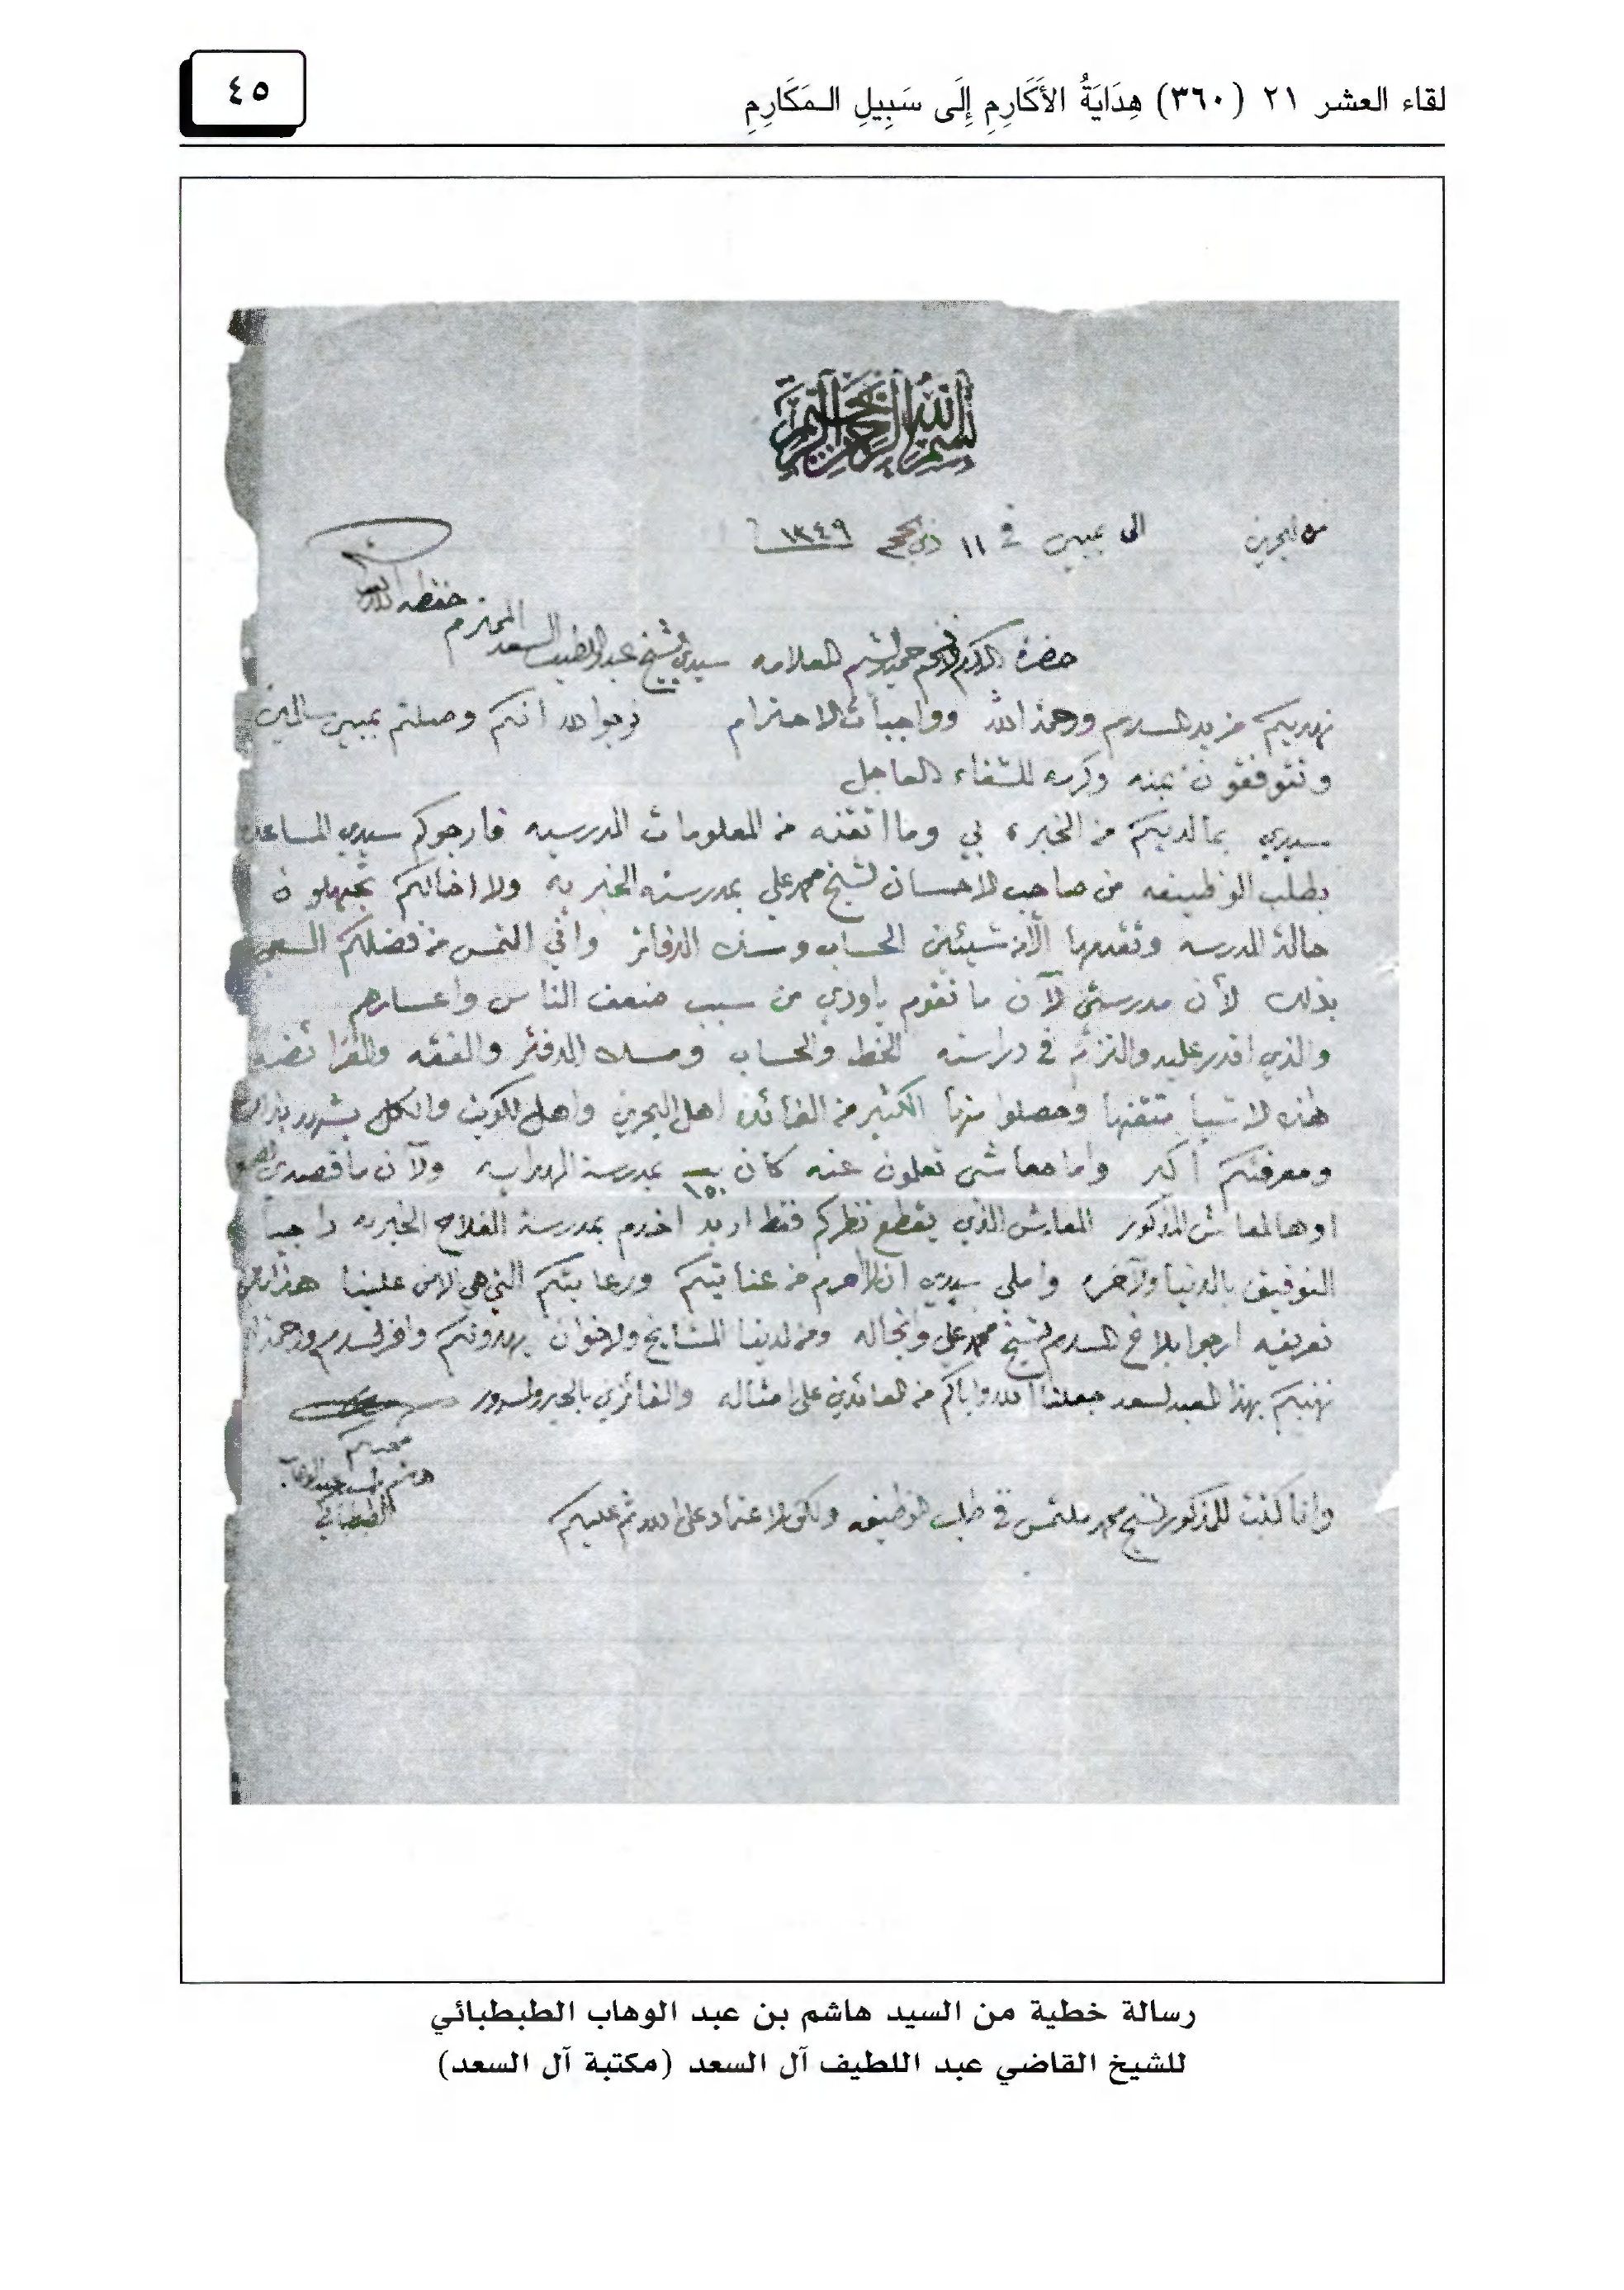 لقاء العشر ٢١ (٣٦٠) هِدَايَةُ الأَكَارِمِ إِلَى سَبِيلِ الـمَكَارِمِ
٤٥
بسم الله الرحمن الرحيم
من البحرين الى بمبي في ١١ ذي الحجة ١٣٤٩
حضرة الاكرم الافخم حميد الشيم العلامه سيدي الشيخ عبد اللطيف السعد المحترم حفظه الله تعالى
نهديكم مزيد السلام ورحمة الله وواجبات الاحترام نرجوا الله انكم وصلتم بمبي سالمين
وتتوفقون بمنه وكرمه للشفاء العاجل
سيدي بما لديكم من الخبره بي وما اتقنه من المعلومات المدرسيه فارجوكم سيدي المساعده
بطلب الوظيفه من صاحب الاحسان الشيخ محمد علي بمدرسته الخيريه ولا اخالكم تجهلون
حالة المدرسه وتقدمها الآن شيئين الحساب ومسك الدفاتر واني التمس من فضلكم السعي
بذلك لأن مدرستي لآن ما تقوم باودي من سبب ضعف الناس واعسارهم
والذي اقدر عليه والتزم في دراسته الخط والحساب ومسك الدفتر والفقه والفرائض
هذه لاشيا متقنها وحصلوا منها الكثير من الفائده اهل البحرين واهل الكويت والكل يشهد بذلك
ومعرفتكم أكبر واما معاشي تعلمون عنه كان ١٥٠ بمدرسة الهدايه ولآن ما قصدي
المعاش المذكور المعاش الذي يقطع نظركم فقط اريد اخدم بمدرسة الفلاح الخيريه راجياً
التوفيق بالدنيا ولآخره واملي سيدي ان لا احرم من عنايتكم ورعايتكم التي هي لآن علينا هذا
تعريفه ارجوا بلاغ السلام الشيخ محمد علي وانجاله ومن لدينا المشايخ ولاخوان يهدونكم وافر السلام ورحمة الله
نهنيكم بهذا العيد السعيد جعلنا الله واياكم من العائدين على امثاله والفائزين بالخير والسرور
محبكم
هاشم بن السيد عبد الوهاب
الطبطبائي
وانا كتبت للمذكور الشيخ محمد ملتمس في طلب الوظيفه ولكن لاعتماد على الله ثم عليكم
رسالة خطية من السيد هاشم بن عبد الوهاب الطبطبائي
للشيخ القاضي عبد اللطيف آل السعد (مكتبة آل السعد)